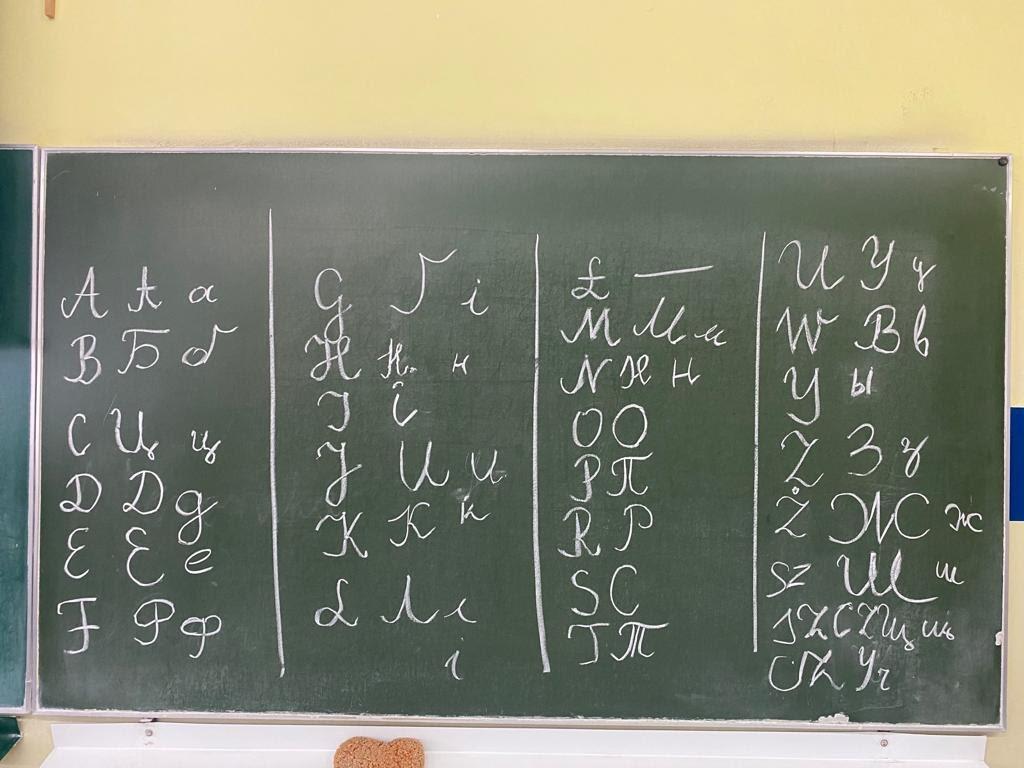 A А а
B Б б
C Ц ц
D D д
E Е е
F Ф ф
G Г г
H Н н
I Î
J И и
K К к
L Л л
i
Ł —
M М м
N Н н
O О
P П
R Р
S С
T Т
U У у
W В в
Y ы
Z З з
Ż Ж ж
SZ Ш ш
SZCZ Щ щ
CZ Ч ч